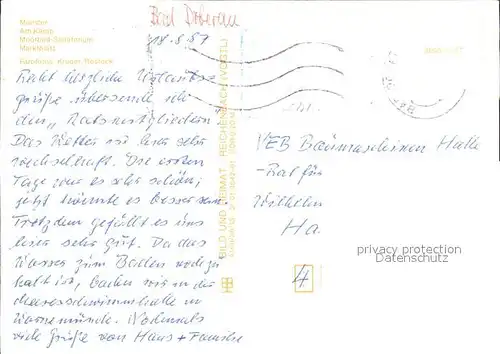 Bad Doberan
18.8.87
Münster
Am Kamp
Moorbad-Sanatorium
Marktplatz
Recht herzliche Urlaubs-
grüße übersende ich
den „Ratsmitgliedern
Das Wetter ist hier sehr
wechselhaft. Die ersten
Tage war es sehr schön,
jetzt könnte es besser sein.
Trotzdem gefällt es uns
hier sehr gut. Da das
Wasser zum Baden noch zu
kalt ist, baden wir in der
Meeresschwimmhalle in
Warnemünde. Nochmals
viele Grüße von Hans + Familie
BILD UND HEIMAT REICHENBACH (VOGTL)
VEB Baumaschinen Halle
- Rat für
Wilhelm
Ha.
privacy protection
DATENSCHUTZ
4